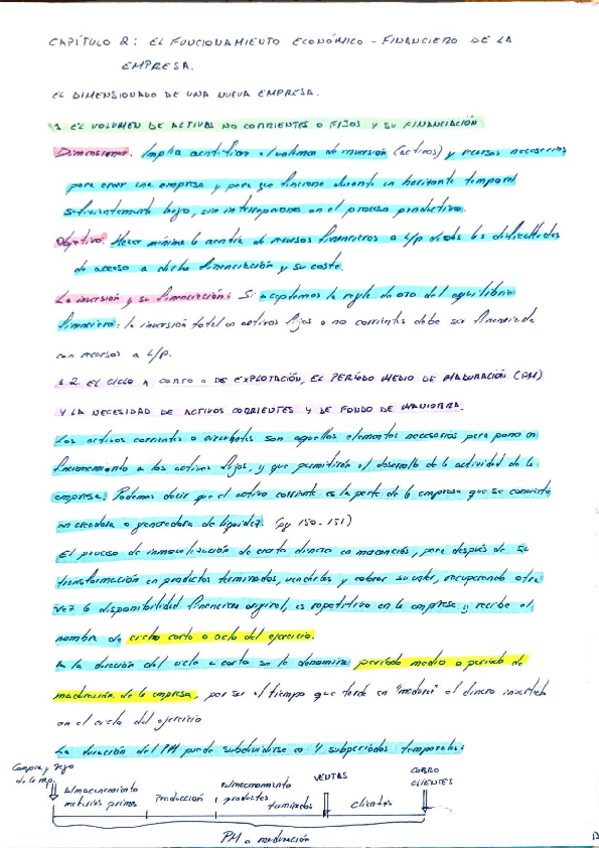 CAPÍTULO 2: EL FUNCIONAMIENTO ECONÓMICO - FINANCIERO DE LA
EMPRESA.
EL DIMENSIONADO DE UNA NUEVA EMPRESA.
1 EL VOLUMEN DE ACTIVOS NO CORRIENTES O FIJOS Y SU FINANCIACIÓN
Dimensionar. Implica cuantificar el volumen de inversión (activos) y recursos necesarios
para crear una empresa y para que funcione durante un horizonte temporal
suficientemente largo, sin interrupciones en el proceso productivo.
Objetivo: Hacer mínima la cuantía de recursos financieros a L/p dadas las dificultades
de acceso a dicha financiación y su coste.
La inversión y su financiación: Si aceptamos la regla de oro del equilibrio
financiero: la inversión total en activos fijos o no corrientes debe ser financiada
con recursos a L/p.
1.2 EL CICLO A CORTO O DE EXPLOTACIÓN, EL PERÍODO MEDIO DE MADURACIÓN (PM)
Y LA NECESIDAD DE ACTIVOS CORRIENTES Y DE FONDO DE MANIOBRA.
Los activos corrientes o circulantes son aquellos elementos necesarios para poner en
funcionamiento a los activos fijos, y que permitirán el desarrollo de la actividad de la
empresa. Podemos decir que el activo corriente es la parte de la empresa que se convierte
en creadora o generadora de liquidez. (pg 150-151)
El proceso de inmovilización de cierto dinero en mercancías, para después de su
transformación en productos terminados, venderlos y cobrar su valor, recuperando otra
vez la disponibilidad financiera original, es repetitivo en la empresa y recibe el
nombre de ciclo corto o ciclo del ejercicio.
A la duración del ciclo a corto se le denomina período medio o período de
maduración de la empresa, por ser el tiempo que tarda en "madurar" el dinero invertido
en el ciclo del ejercicio
La duración del PM puede subdividirse en 4 subperíodos temporales:
Compra y
de la mp.
almacenamiento
materias primas
Producción
almacenamiento
productos
terminados
VENTAS
clientes
COBRO
CLIENTES
PM o maduración